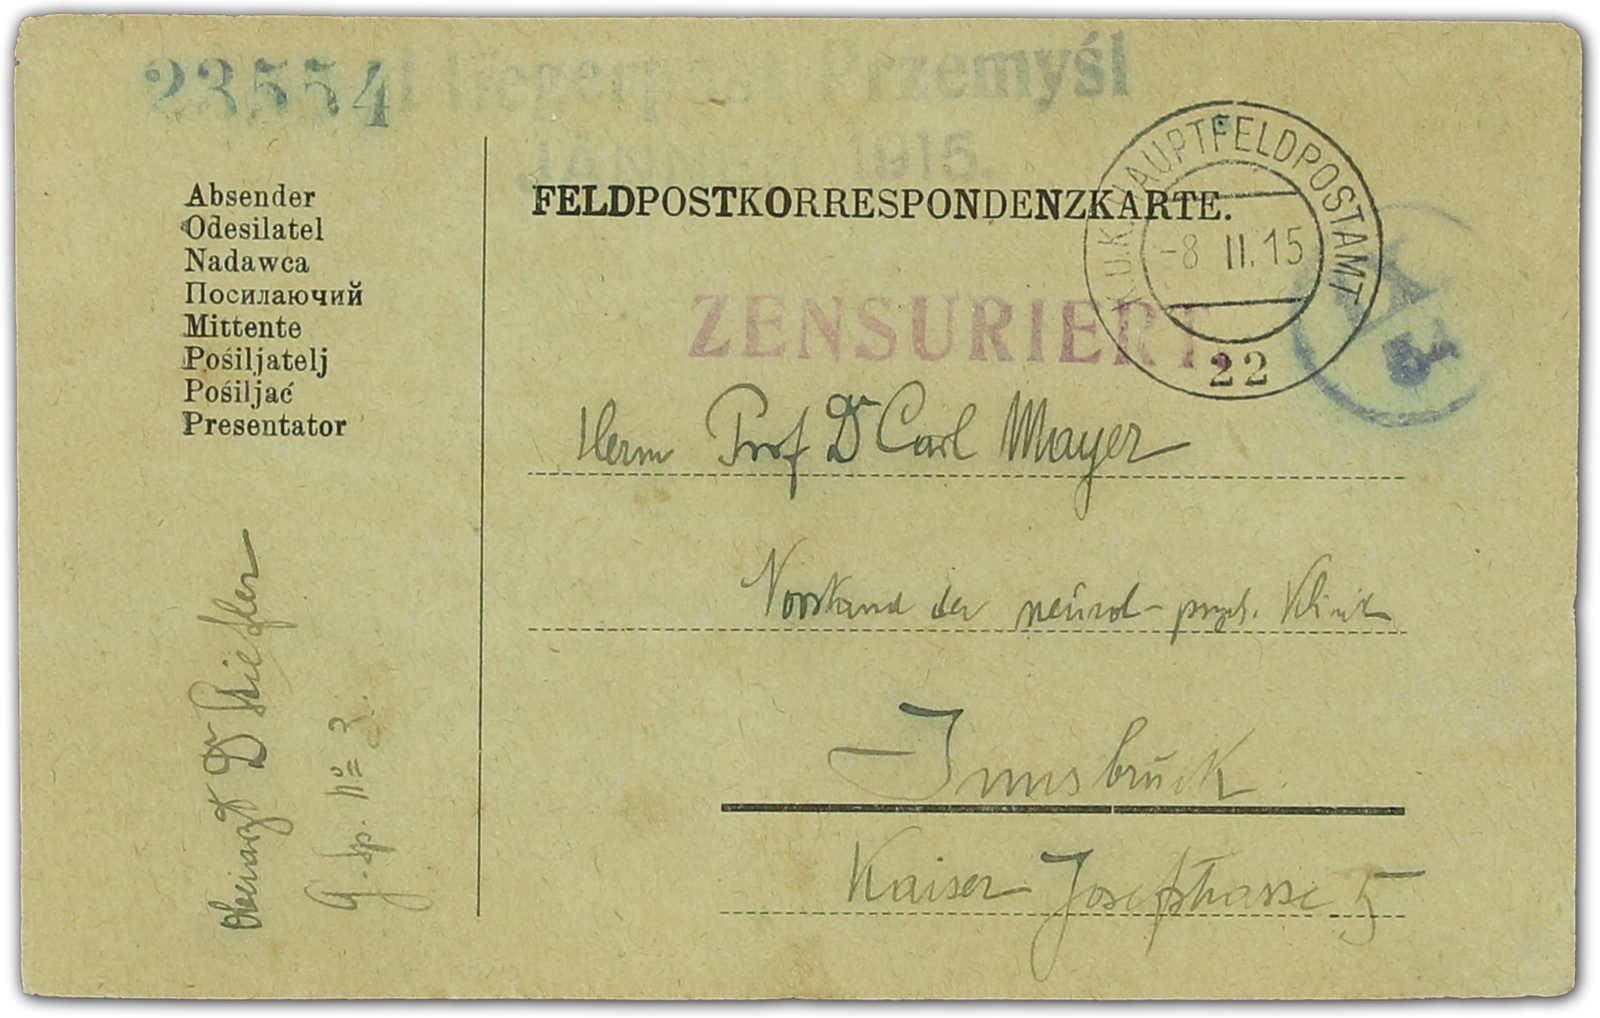 23554 Fliegerpost Przemyśl
JÄNNER 1915.
FELDPOSTKORRESPONDENZKARTE.
K.U.K. HAUPTFELDPOSTAMT
-8 II.15
22
ZENSURIERT.
Absender
Odesilatel
Nadawca
Посилаючий
Mittente
Pośiljatelj
Pośiljać
Presentator
Herrn Prof Dr Carl Mayer
Vorstand der neurol-psych. Klinik
Innsbruck
Kaiser Josefstrasse 5
Oberarzt Dr Stiefler
G. Sp. No 3.